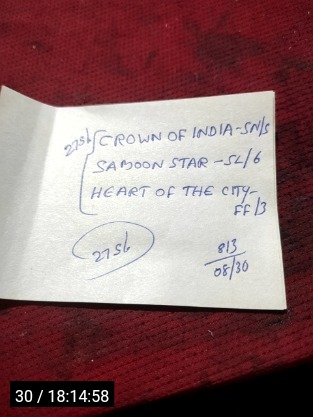 2756 CROWN OF INDIA-SN/5
SAMOON STAR -SL/6
HEART OF THE CITY-
FF/3
2756
813
08/30
30 / 18:14:58